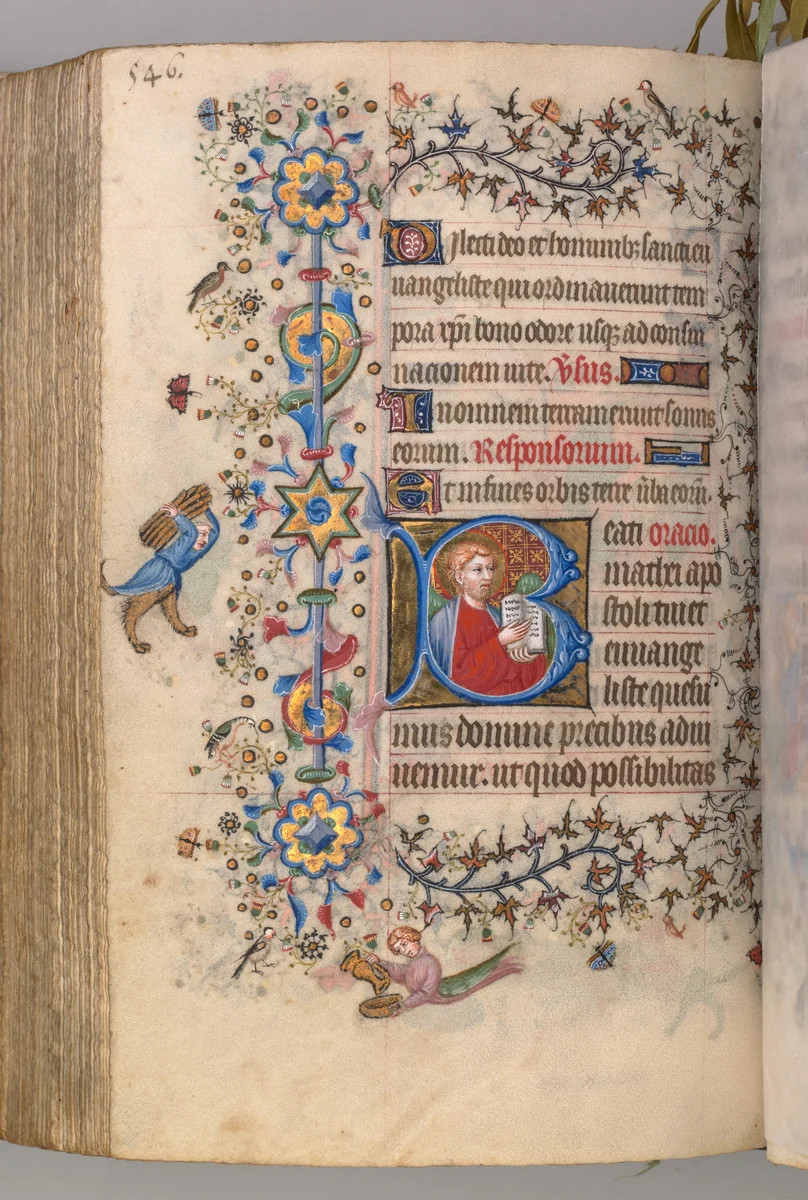 546.
Dilecti deo et hominib; sancti eu
uangeliste qui ordinauerunt tem
pora xpi bono odore usq; ad consu
nacionem uite. V̄sus.
In omnem terram exiuit sonus
eorum. Responsorium.
Et in fines orbis terre ūba eoꝝ.
Beati oracio.
mathei apo
stoli tui et
euuange
liste quesu
mus domine precibus adiu
uemur. ut quod possibilitas